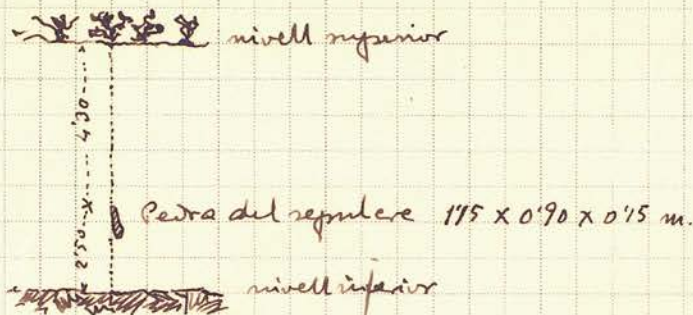 nivell superior
4'30
Pedra del sepulcre 1'15 x 0'90 x 0'15 m.
2'50
nivell inferior